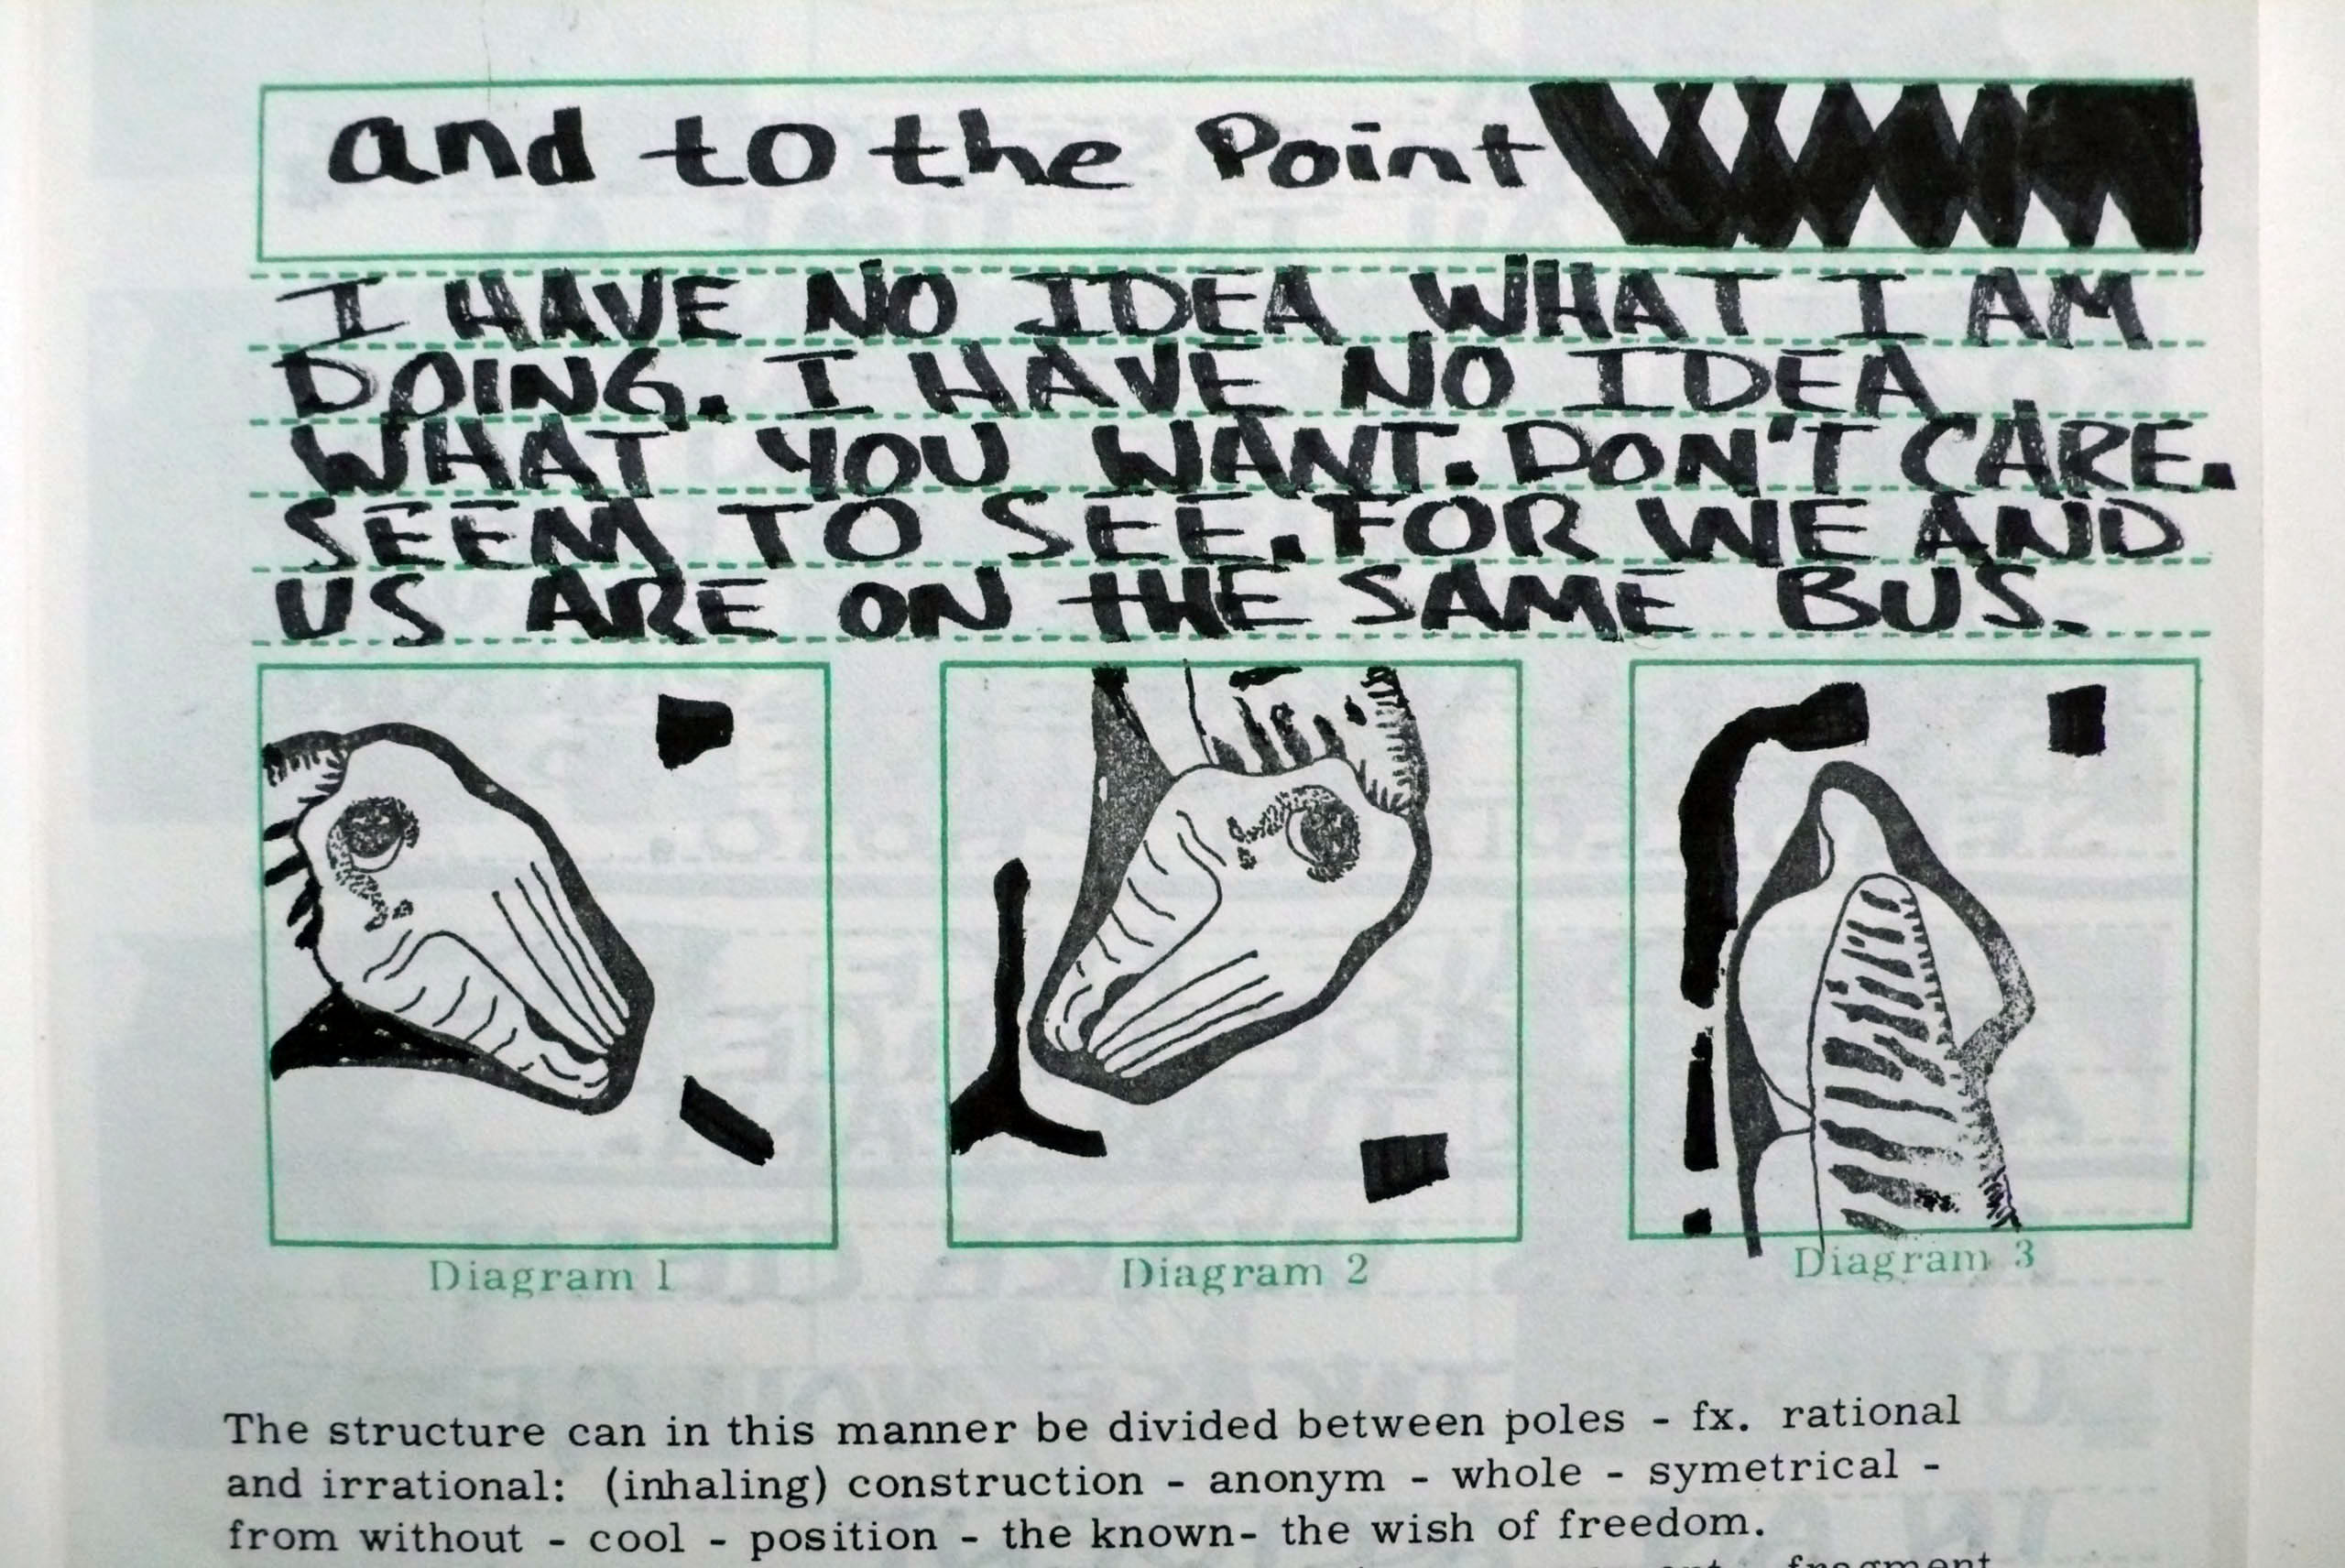 and to the Point
I HAVE NO IDEA WHAT I AM
DOING. I HAVE NO IDEA
WHAT YOU WANT. DON'T CARE.
SEEM TO SEE. FOR WE AND
US ARE ON THE SAME BUS.
Diagram 1
Diagram 2
Diagram 3
The structure can in this manner be divided between poles - fx. rational
and irrational: (inhaling) construction - anonym - whole - symetrical -
from without - cool - position - the known- the wish of freedom.
fragment